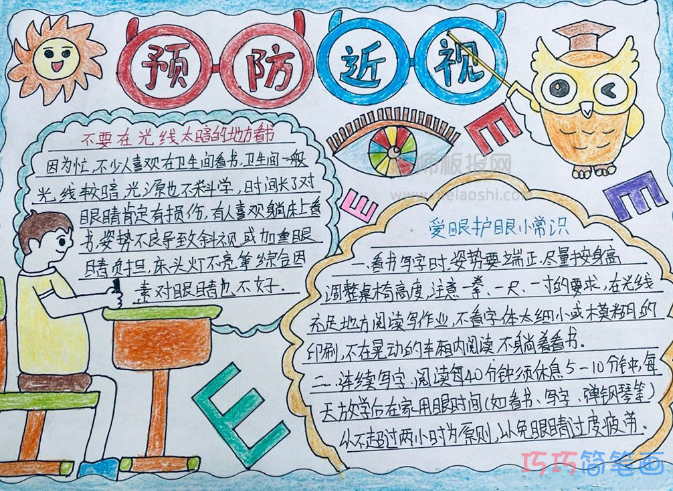 预防近视
不要在光线太暗的地方看书
因为忙,不少人喜欢在卫生间看书.卫生间一般
光线较暗,光源也不科学,时间长了对
眼睛肯定有损伤,有人喜观躺床上看
书,姿势不良导致斜视或加重眼
睛负担,床头灯不亮等综合因
素对眼睛也不好.
师板报网
爱眼护眼小常识
一.看书写字时,姿势要端正.尽量按身高
调整桌椅高度,注意一拳、一尺、一寸的要求,在光线
充足地方阅读写作业,不看字体太细小或模糊的
印刷,不在晃动的车厢内阅读,不躺着看书.
二.连续写字、阅读每40分钟须休息5-10分钟,每
天放学后在家用眼时间(如看书、写字、弹钢琴等)
以不超过两小时为原则,以免眼睛过度疲劳.
E
E
E
E
巧巧简笔画